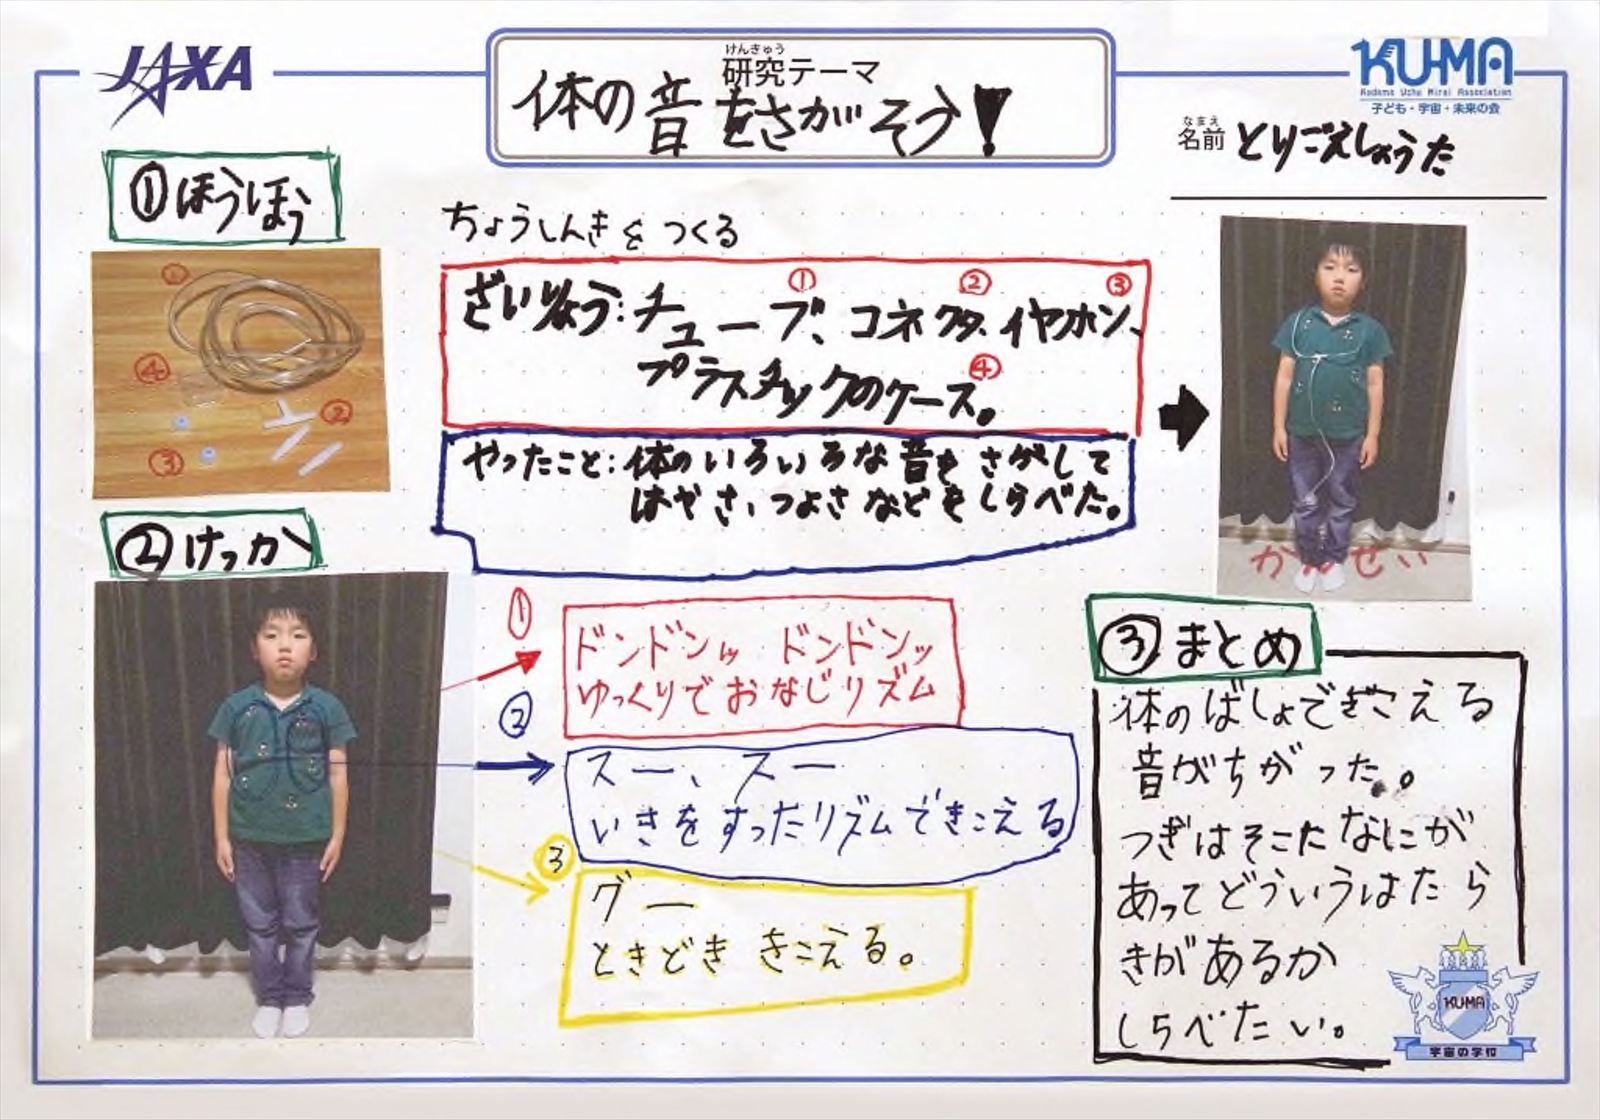 JAXA
けんきゅう
研究テーマ
体の音をさがそう!
KU-MA
Kodomo Uchu Mirai Association
子ども・宇宙・未来の会
なまえ
名前 とりごえしょうた
①ほうほう
①
④
②
③
ちょうしんきをつくる
① ② ③
ざいりょう:チューブ、コネクタ、イヤホン、
④
プラスチックのケース。
やったこと:体のいろいろな音をさがして
はやさ、つよさなどをしらべた。
かんせい
②けっか
①
ドンドンッ ドンドンッ
ゆっくりでおなじリズム
②
スー、スー
いきをすったリズムできこえる
③
グー
ときどき きこえる。
③まとめ
体のばしょできこえる
音がちがった。
つぎはそこたなにが
あってどういうはたら
きがあるか
しらべたい。
KUMA
宇宙の学校